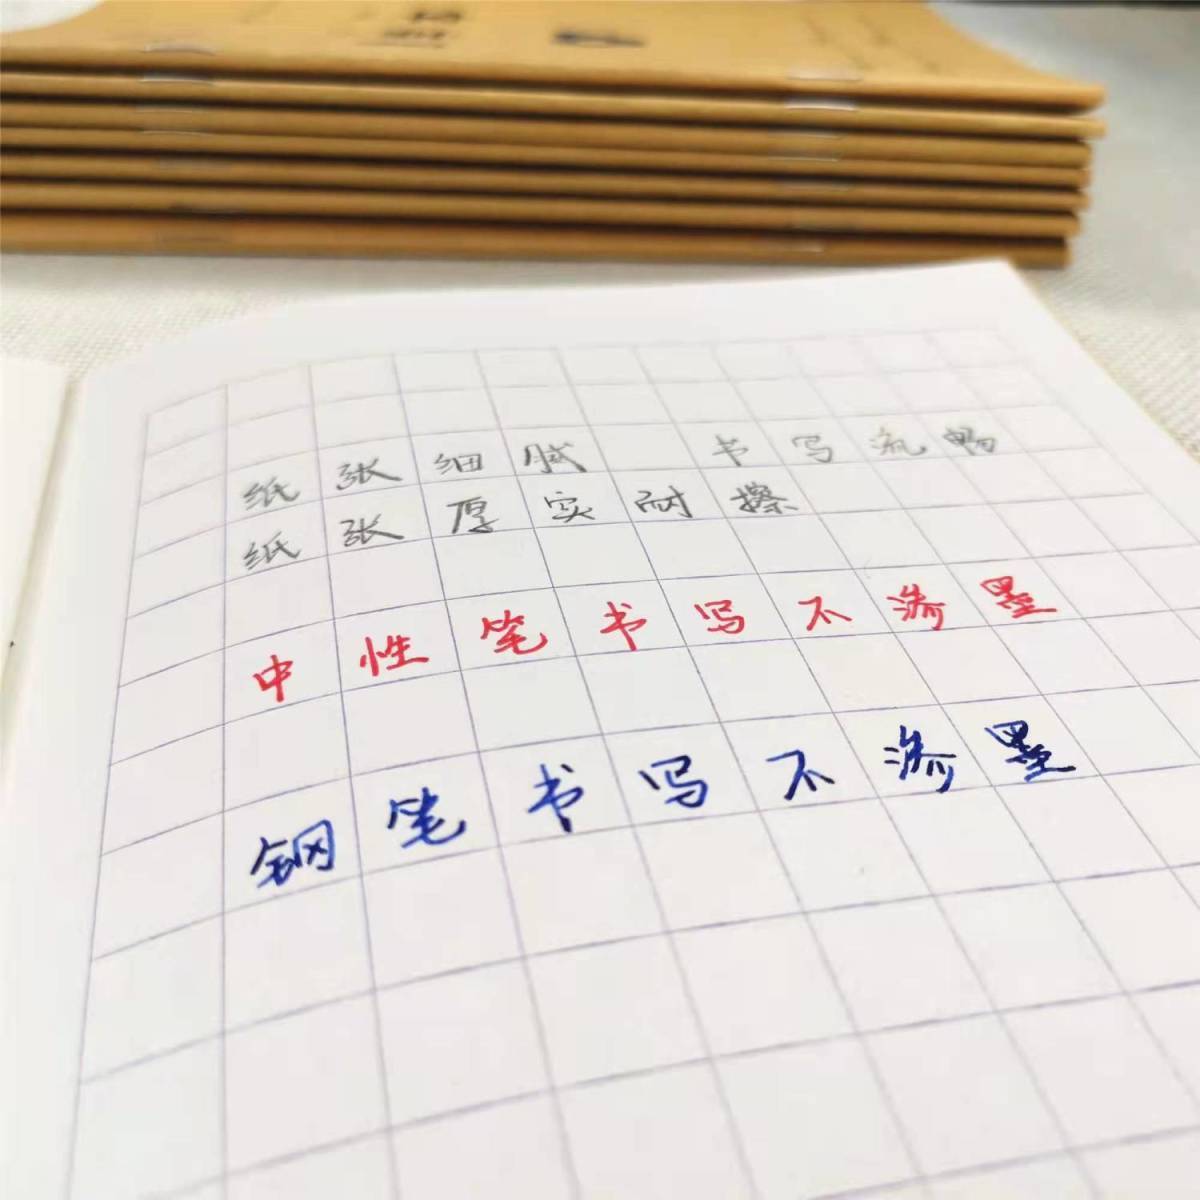 纸张细腻 书写流畅
纸张厚实耐擦
中性笔书写不渗墨
钢笔书写不渗墨